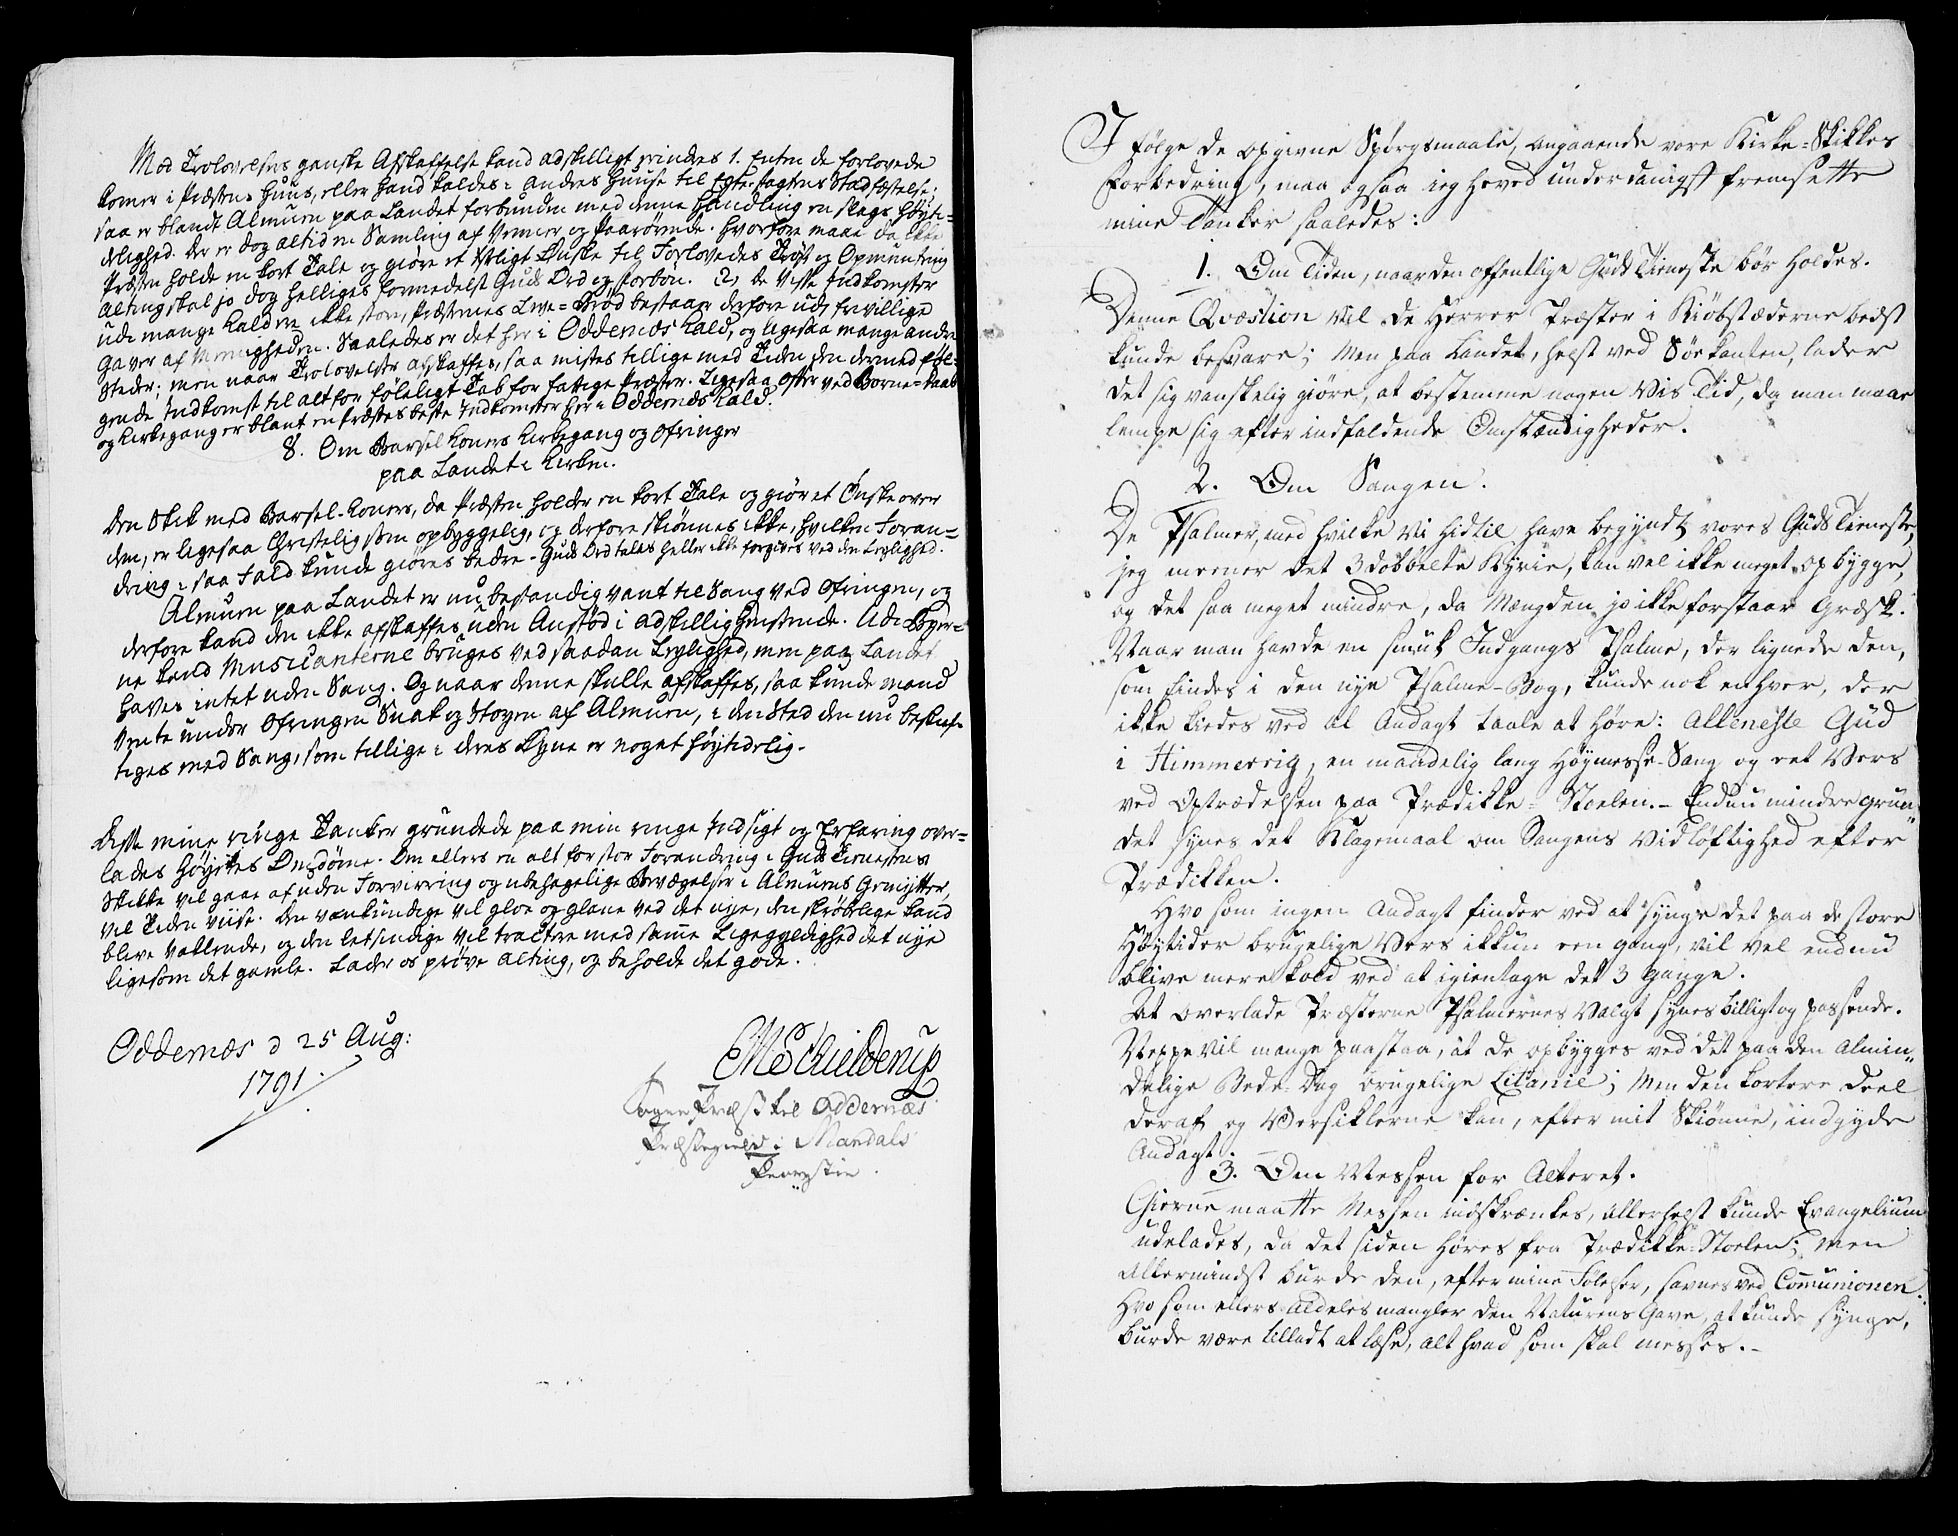 Mod Trolovelsens ganske Afskaffelse kand adskilligt erindres 1. Enten de forlovede
komer i Præstens Huus, eller hand kaldes i andres Huuse til Egte-Pagtens Stadfæstelse;
saa er blandt Almuen paa Landet forbunden med denne Handling en slags Høyti=
delighed. Der er dog altid en Samling af Venner og Paarørende. Hvorfore maae da ikke
Præsten holde en kort Tale og giøre et Christeligt Ønske til Forlovedes Trøst og Opmuntring
Alting skal jo dog helliges formedelst Guds Ord og forbøn. 2, De Viste Indkomster
udi mange Kald ere ikke store, Præsternes Leve=Brød bestaaer derfore udi frivillige
Gaver af Menigheden. Saaledes er det her i Oddernæs Kald, og ligesaa mange andre
Steder; men naar Trolovelser afskaffes, saa mistes tillige med Tiden den dermed føl=
gende Indkomst til alt for føleligt Tab for fattige Præster. Ligesaa Offer ved Borne=Daab
og Kirkegang er blant en Præstes beste Indkomster her i Oddernæs Kald.
8. Om Barsel Koners Kirkegang og Ofringer
paa Landet i Kirken.
Den Skik med Barsel-Koners, da Præsten holder en kort Tale og giør et Ønske over
dem, er ligesaa Christelig som opbyggelig, og derfore skiønnes ikke, hvilken Foran=
dring i saa Fald kunde giøres bedre. Guds Ord tales heller ikke forgieves ved den Leylighed.
Almuen paa Landet er nu bestandig vant til Sang ved Ofringen, og
derfore kand den ikke afskaffes uden Anstød i adskillig Henseende. Udi Byer=
ne kand Musicanterne bruges ved saadan Leylighed, men paa Landet
haves intet uden Sang. Og naar denne skulle afskaffes, saa kunde mand
vente under Ofringen Snak og Støyen af Almuen, i den Sted den nu beskief=
tiges med Sang, som tillige i deres Øyne er noget høytidelig.
Disse mine ringe Tanker grundede paa min ringe Indsigt og Erfaring over=
lades Høystes Omdøme. Om ellers en alt for stor Forandring i Guds Tienestens
Skikke vil gaae af uden Forvirring og ubehagelige Bevægelser i Almuens Gemytter,
vil Tiden viise. Den vankundige vil gloe og glane ved det nye, den skrøbelige kand
blive vaklende, og den letsindige vil tractere med same Ligegyldighed det nye
ligesom det gamle. Lader os prøve alting, og beholde det gode.
Oddernæs d 25 Aug:
1791.
Schielderup
Sogne Præst til Oddernæs
Præstegield i Mandals
I følge de opgivne Spørgsmaale, angaaende vore Kirke=Skikkes
Forbedring, maa ogsaa jeg herved underdanigst fremsætte
mine Tanker saaledes:
1. Om Tiden, naar den offentlige Guds Tieneste bør holdes.
Denne Qvæstion vil de Herrer Præster i Kiøbstæderne bedst
kunde besvare; Men paa Landet, helst ved Søe kanten, lader
det sig vanskelig giøre, at bestemme nogen Vis Tid, da man maae
lempe sig efter indfaldende Omstændigheder.
2. Om Sangen.
De Psalmer, med hvilke vi hidtil have begyndt vores Guds Tieneste,
jeg meener det 3 dobbelte Kyrie, kan vel ikke meget opbygge,
og det saa meget mindre, da Mængden jo ikke forstaar Græsk.
Naar man havde en smuk Indgangs Psalme, der lignede den,
som findes i den nye Psalme-Bog, kunde nok enhver, der
ikke kiedes ved al Andagt taale at høre: Alleneste Gud
i Himmerrig, en maadelig lang Høymesse-Sang og eet Vers
ved Optrædelsen paa Prædikke=Stoelen. - Endnu mindre grun„
det synes det Klagemaal om Sangens Vidløftighed efter
Prædikken.
Hvo som ingen Andagt finder ved at synge det paa de store
Høytider brugelige Vers ikkun een gang, vil vel endnu
blive mere kold ved at igientage det 3 gange.
At overlade Præsterne Psalmernes Valgt synes billigt og passende.
Neppe vil mange paastaa, at de opbygges ved det paa den almin„
delige Bede-Dag brugelige Litanie; Men den kortere Deel
deraf og Versiklerne kan, efter mit Skiønne, indgyde
Andagt.
3. Om Messen for Alteret.
Gierne maatte Messen indskrænkes, allerhelst kunde Evangelium
udelades, da det siden høres fra Prædikke-Stoelen; men
allermindst burde den, efter mine Følelser, savnes ved Communionen.
Hvo som ellers aldeles mangler den Naturens Gave, at kunde synge,
burde være tilladt at læse, alt hvad som skal messes. -